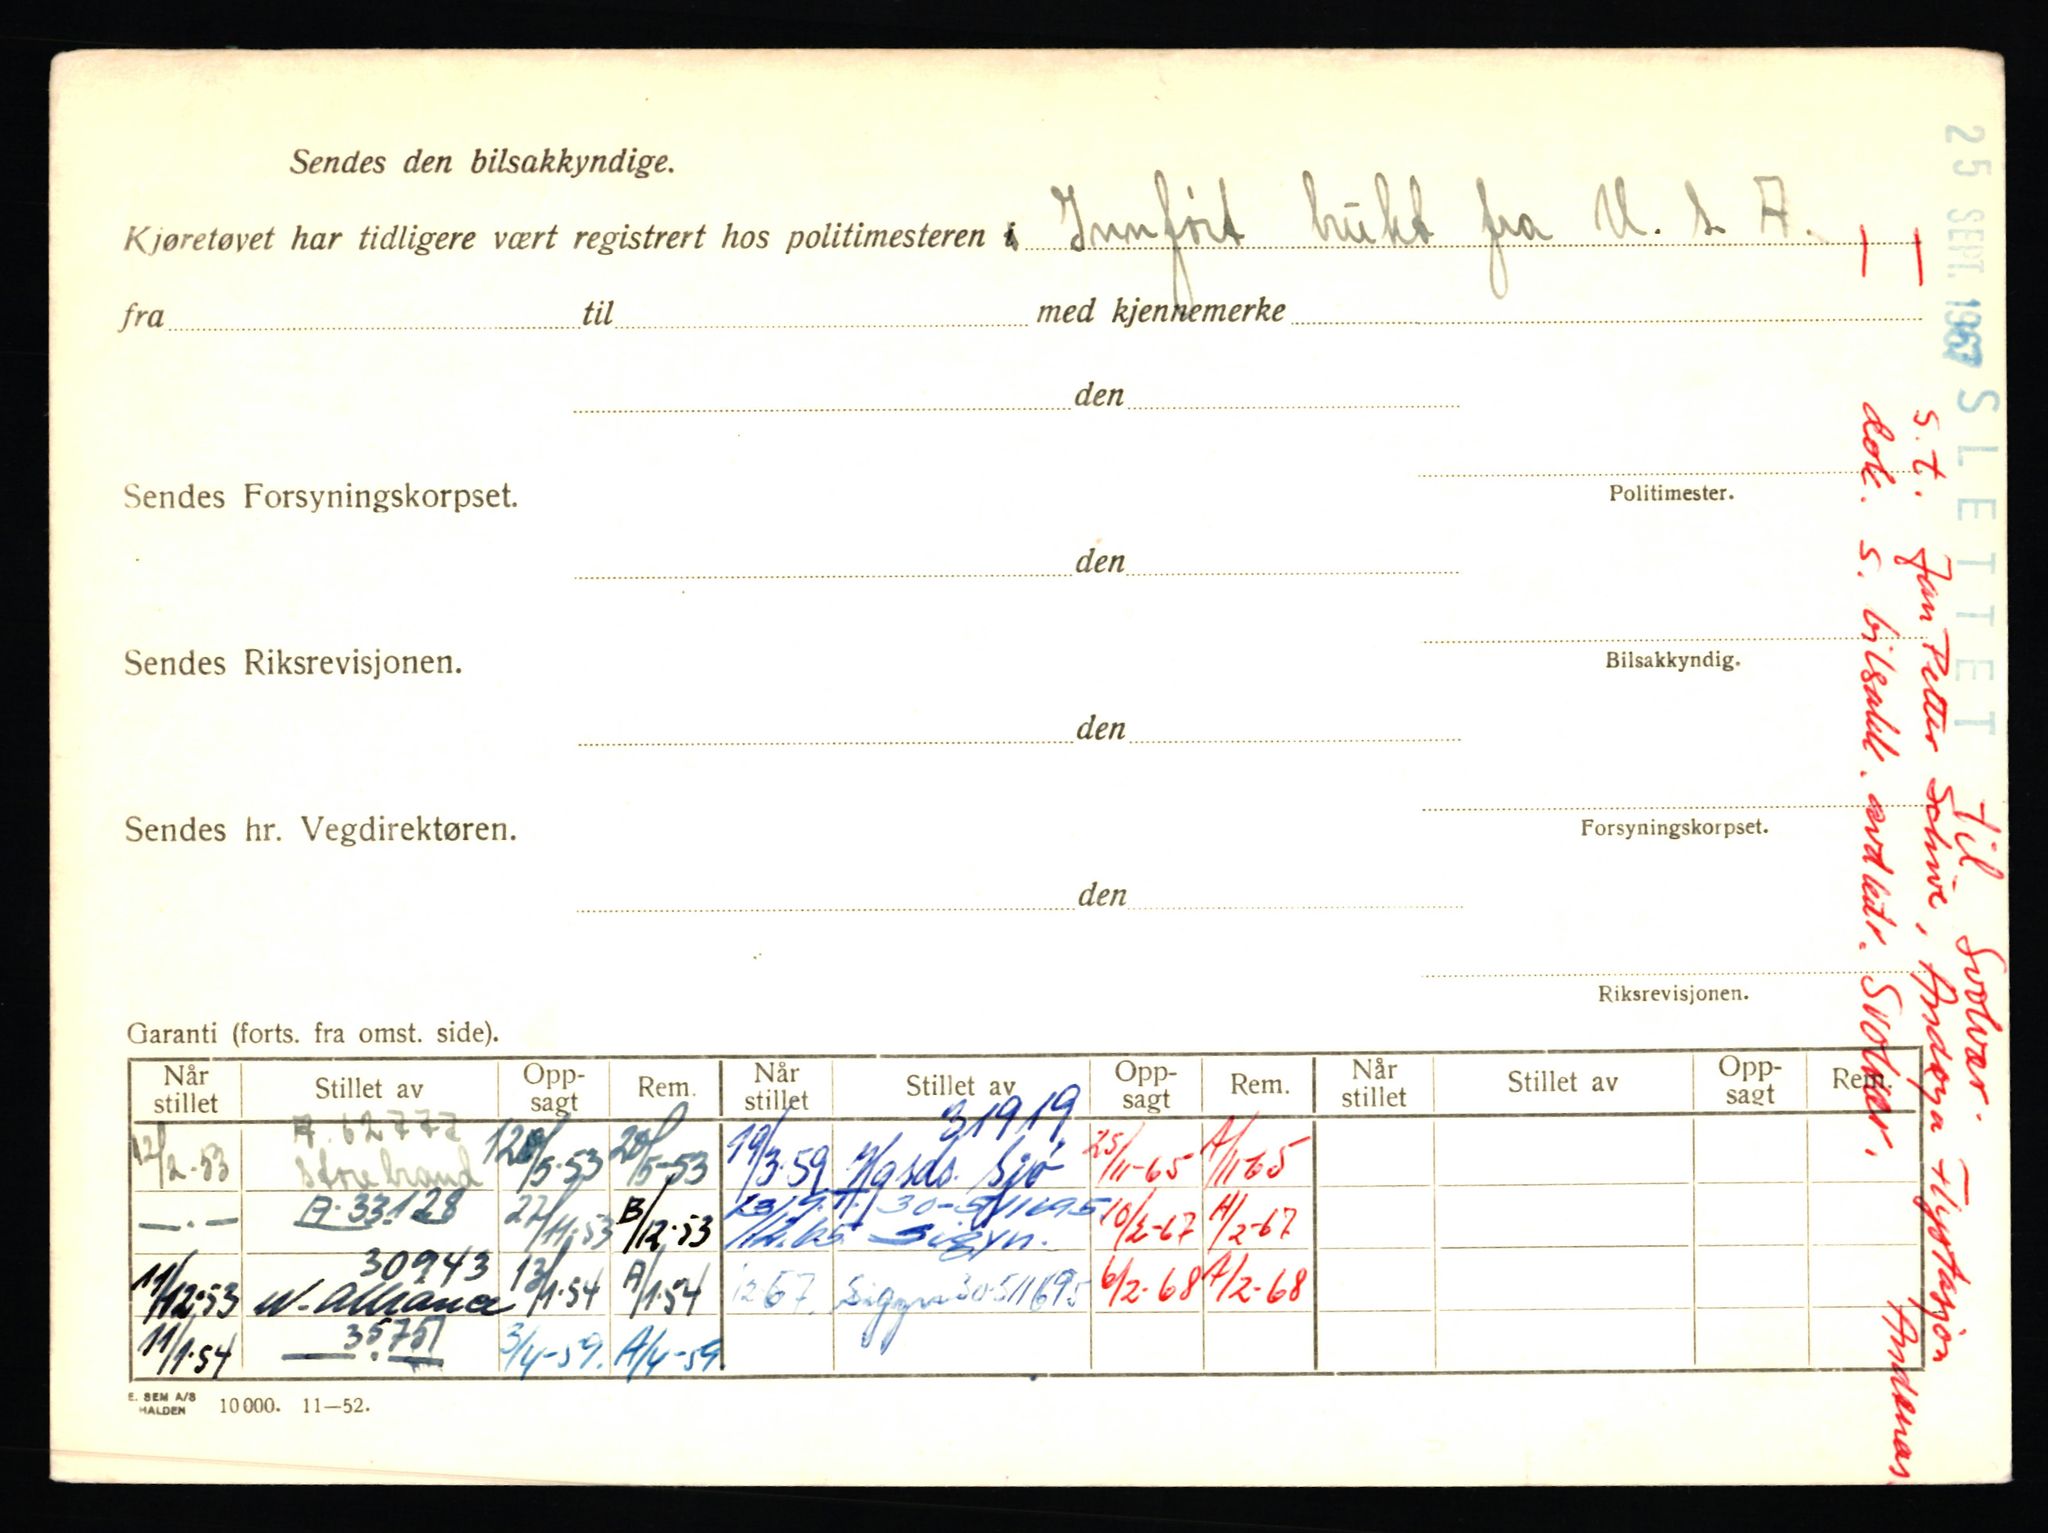 Sendes den bilsakkyndige.
Kjøretøvet har tidligere vært registrert hos politimesteren i Innført brukt fra U. S. A.
fra til med kjennemerke
den
Politimester.
Sendes Forsyningskorpset.
den
Bilsakkyndig.
Sendes Riksrevisjonen.
den
Forsyningskorpset.
Sendes hr. Vegdirektøren.
den
Riksrevisjonen.
Garanti (forts. fra omst. side).
Når stillet Stillet av Opp-sagt Rem. Når stillet Stillet av Opp-sagt Rem. Når stillet Stillet av Opp-sagt Rem.
12/2-53 A. 62777 Storebrand 5-53 20/5-53 19/3-59 31919 Sjø 25/11-65 A/11-65
—.— A.33128 27/11.53 B/12.53 30-5/11695 Sigyn. 10/2-67 A/2-67
11/12.53 30943 N. Alliance 13/1.54 A/1.54 12 67. Sigyn 30-5/11695 6/2-68 A/2-68
11/1.54 35751 —.— 3/4-59. A/4-59
E. SEM A/S
HALDEN 10000. 11—52.
25 SEPT. 1967 SLETTET til Svolvær.
s.t. Jan Petter Schive, Andøya Flystasjon
Andenes
dok. s. bilsakk. avd.ktr. Svolvær.